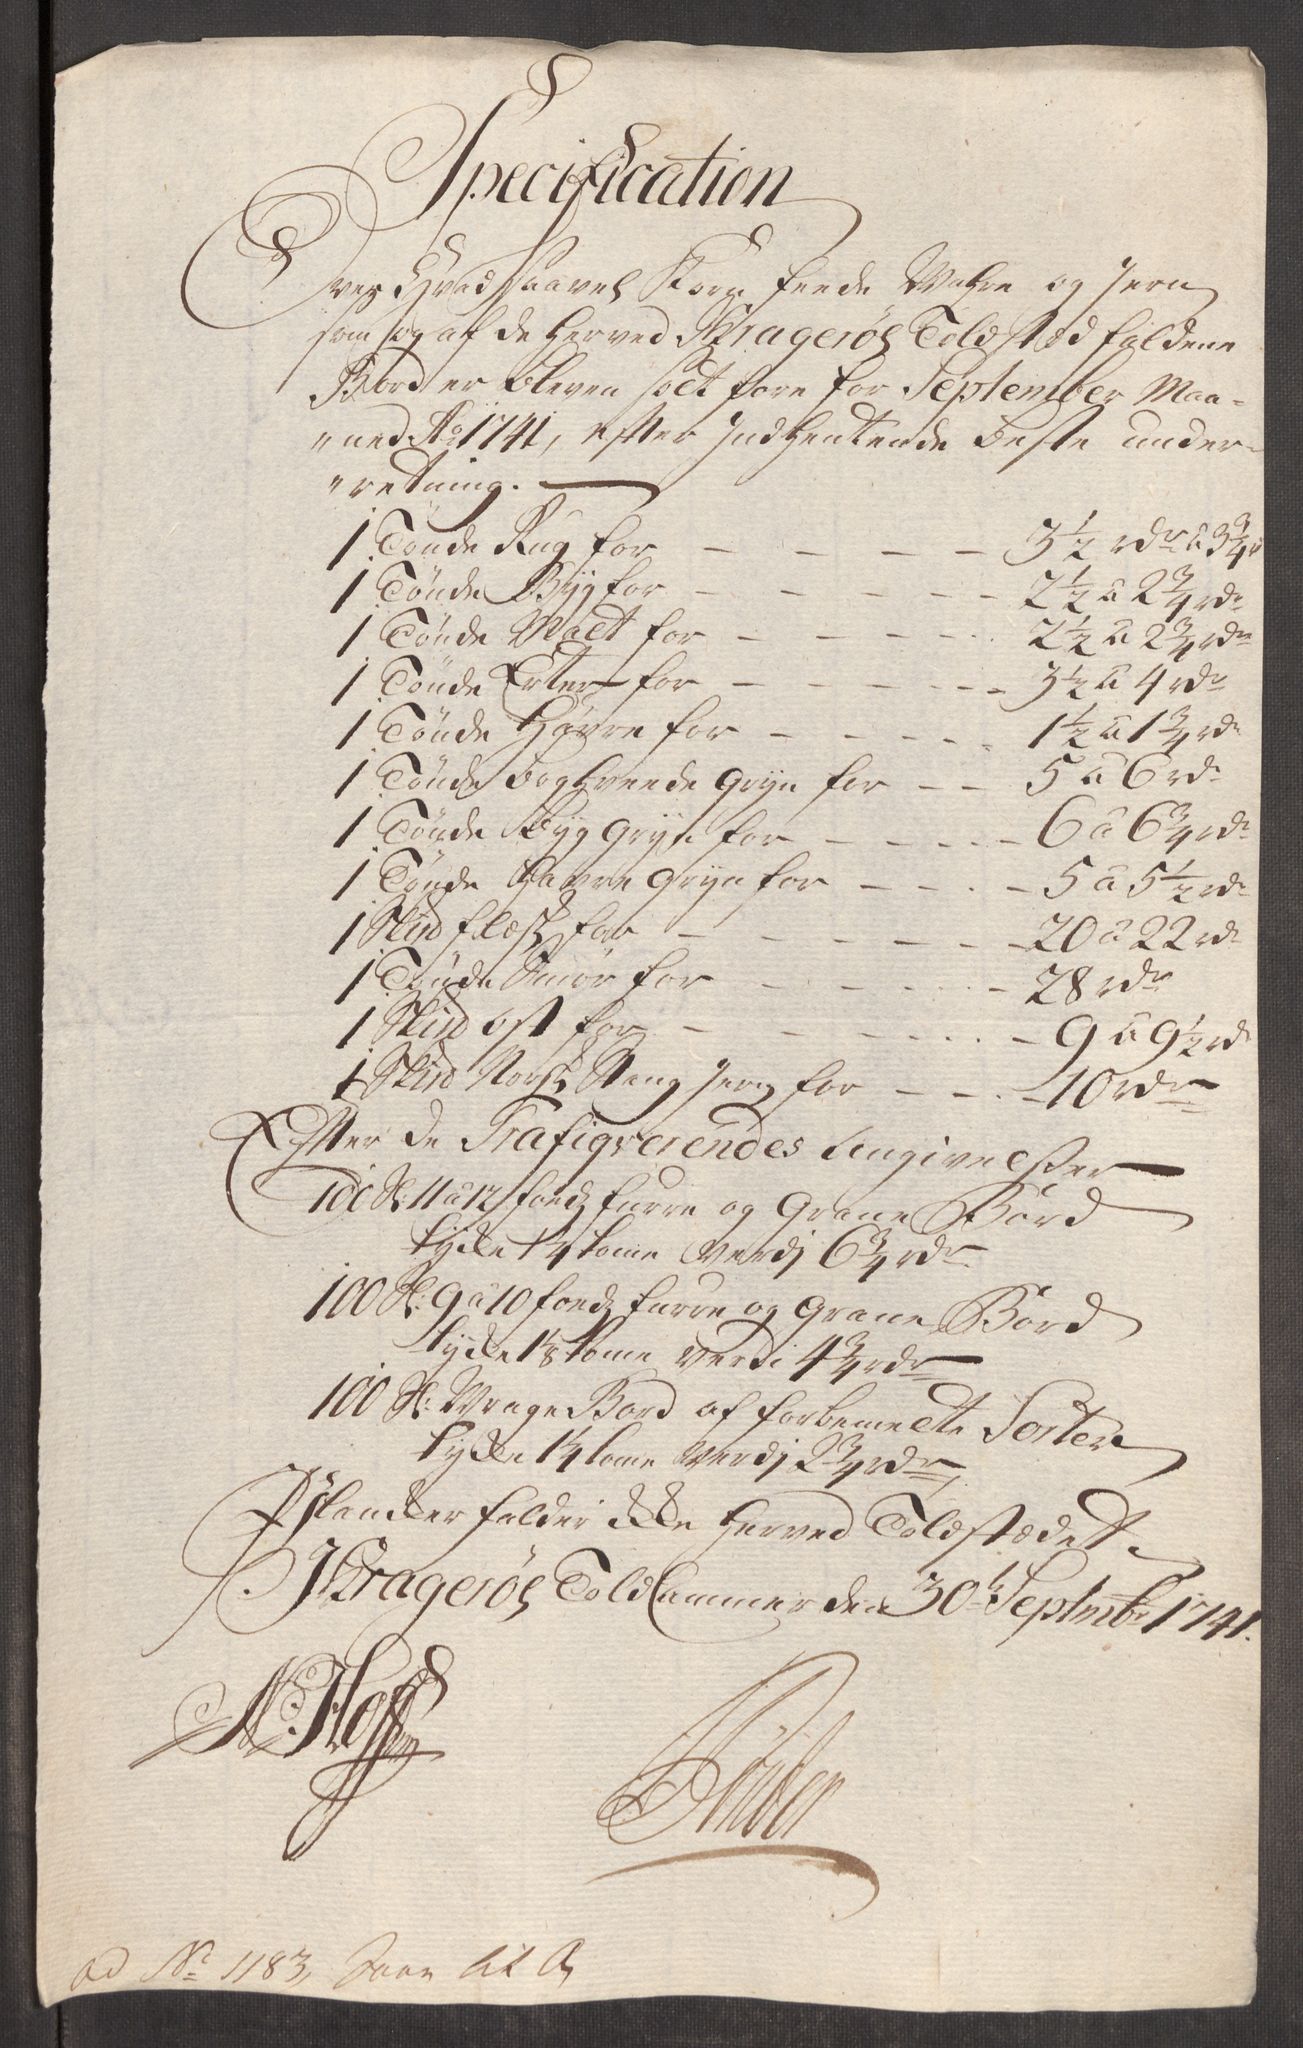 Specification
Over Hvad saavel Korn feede Wahre og Jern
som og af de herved Kragerøes Toldsted faldene
Bord er bleven solt fore for September Maa-
"ned Ao 1741, efter Indhentende beste under-
"retning.
1 Tønde Rug for - - - - - 3 1/2 rdr a 3 3/4
1 Tønde Byg for - - - - - 2 1/2 a 2 3/4 rdr
1 Tønde Malt for - - - - - 2 1/2 a 2 3/4 rdr
1 Tønde Erter for - - - - - 3 1/2 a 4 rdr
1 Tønde Havre for - - - - - 1 1/2 a 1 3/4 rdr
1 Tønde boghveede Gryn for - - 5 a 6 rdr
1 Tønde Byg Gryn for - - - - - 6 a 6 3/4 rdr
1 Tønde Havre Gryn for - - - - 5 a 5 1/2 rdr
1 Sk℔ flesk for - - - - - - 20 a 22 rdr
1 Tønde Smør for - - - - - 28 rdr
1 Sk℔ ost for - - - - - - 9 a 9 1/2 rdr
1 Sk℔ Norsk Stang Jern for - - - - 10 rdr
Efter de Trafiqverendes Angivelser
100 St: 11 a 12 foeds furre og Grane Bord
tyke 1 1/4 tome verdi 6 3/4 rdr
100 St: 9 a 10 foeds furre og Grane Bord
tyke 1 1/8 tome verdi 4 3/4 rdr
100 St: Vrage Bord af forbemelte Sorter
tykke 1 1/4 tome verdi 2 3/4 rdr
Planker falder ikke herved Toldstædet
Kragerøes Told Cammer den 30te Septembr 1741.
N: Hoff
ad No 1183, Saan lit A